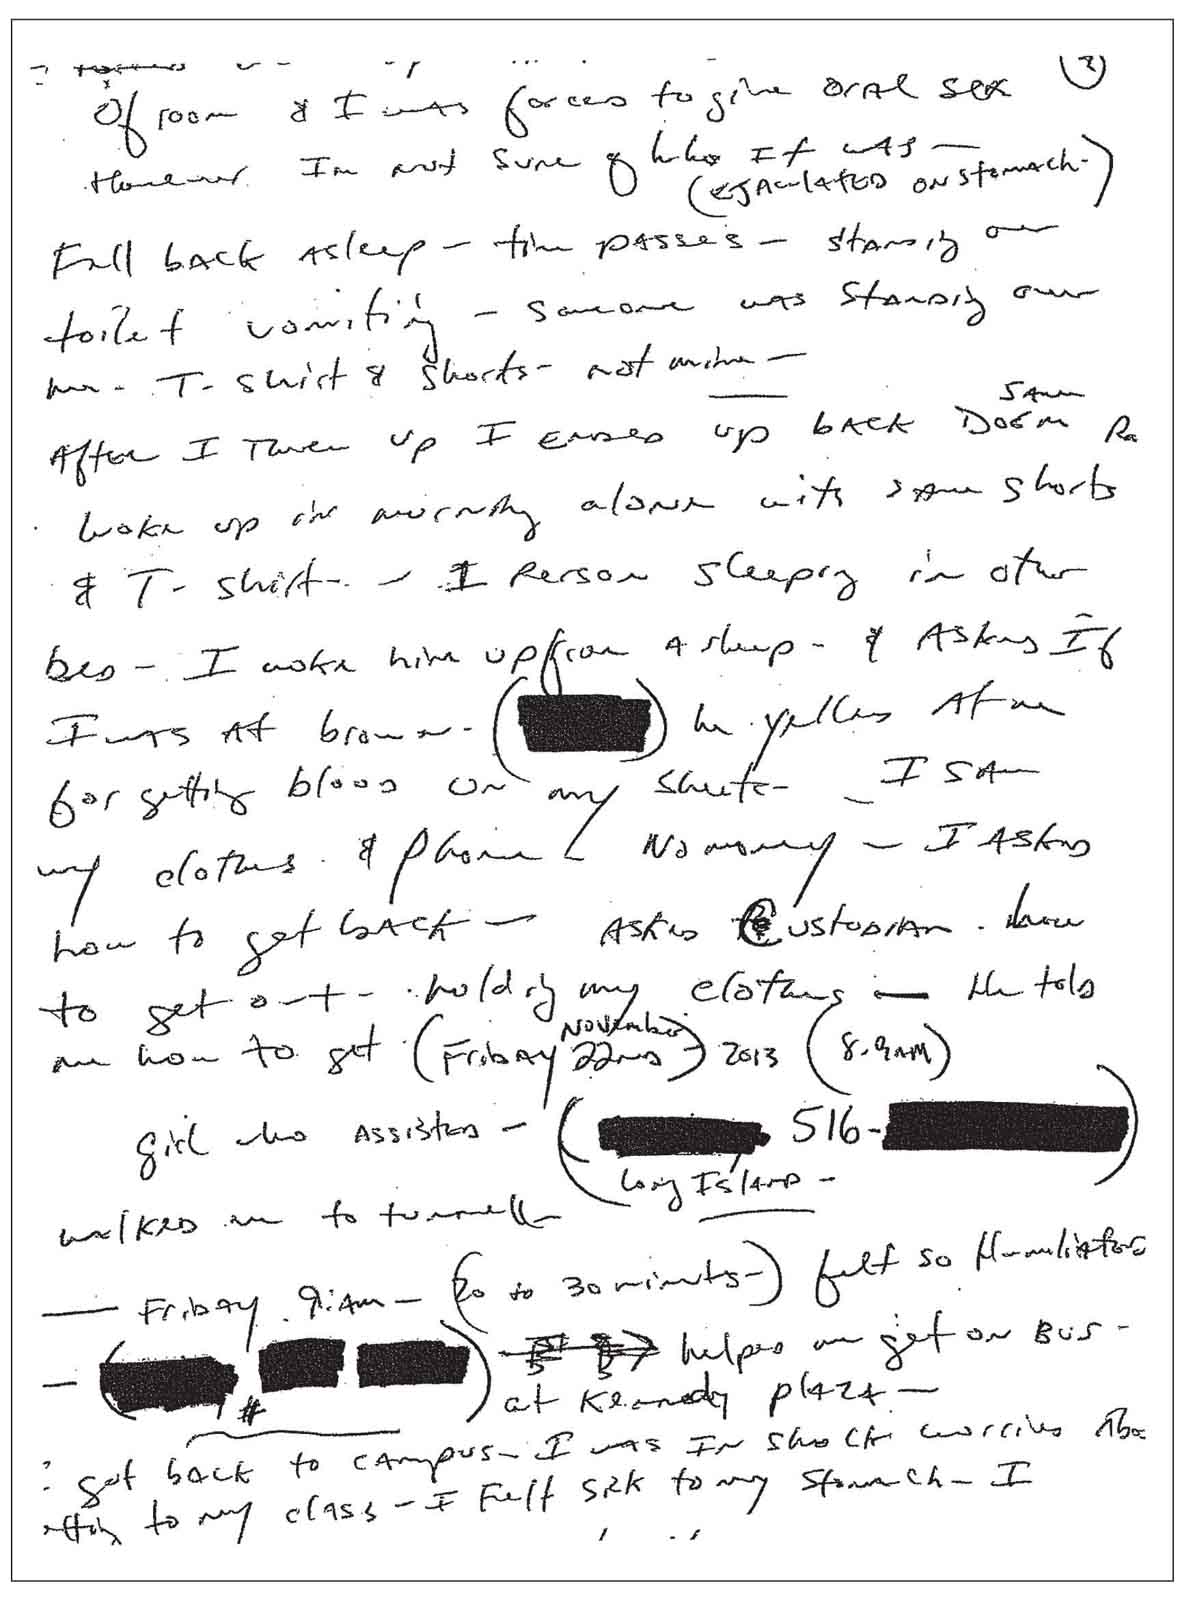 2
Of room & I was forced to give oral sex
However I'm not sure of who it was —
(EJACULATED ON STOMACH-)
Fall back Asleep — time passes — standing over
toilet vomiting — someone was standing over
me - T-shirt & shorts - not mine —
After I threw up I ENDED up back Dorm Ro
SAME
woke up in morning alone with same shorts
& T-shirt - — 1 Person sleeping in other
bed — I woke him up from asleep - & Asked If
I was At brown - ( ) he yelled At me
for getting blood on my sheets - I saw
my clothes & phone - No money — I Asked
how to get back — ASKED CUSTODIAN how
to get out - holding my clothes — He told
me how to get (FRIDAY 22ND -) 2013 (8-9AM)
NOVEMBER
girl who ASSISTED - ( 516- )
Long ISLAND -
walked me to tunnel -
— FRIDAY 9:AM — (20 to 30 minutes -) felt so Humiliated
— ( ) helped me get on BUS -
#
at Kennedy PLAZA —
got back to CAMPUS - I was In shock worried Abo
to my class - I Felt sick to my stomach - I